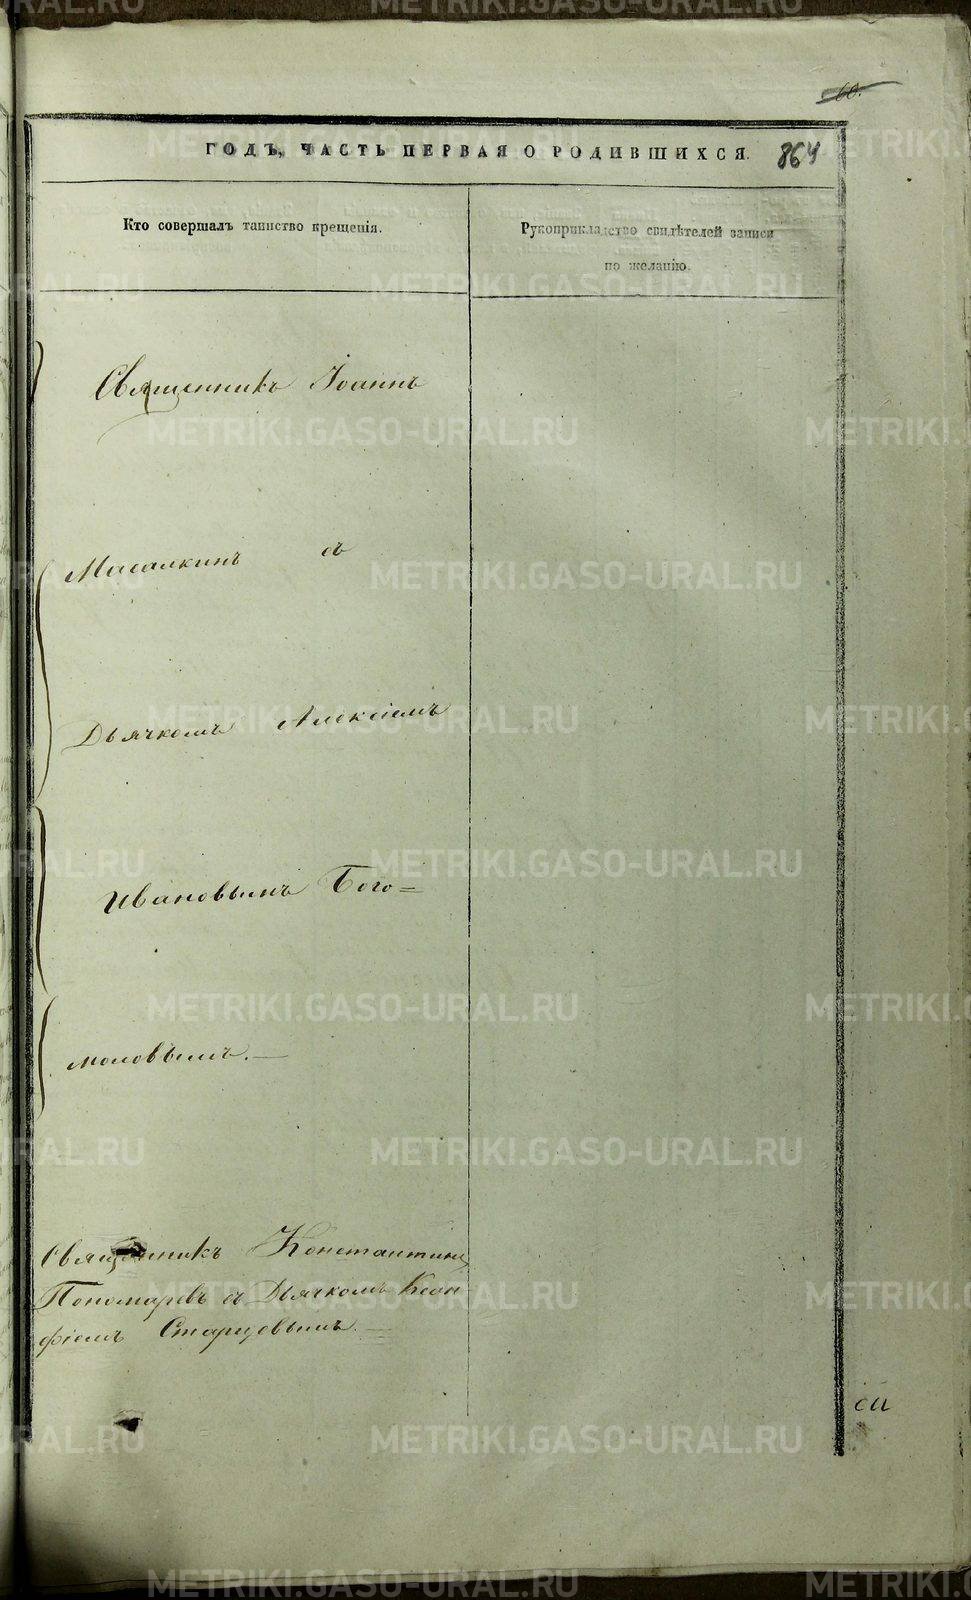 60.
ГОДЪ, ЧАСТЬ ПЕРВАЯ О РОДИВШИХСЯ. 864
Кто совершалъ таинство крещенія.
Рукоприкладство свидѣтелей записи
по желанію.
Священникъ Іоаннъ
Масалкинъ съ
Дьячкомъ Алексіемъ
Ивановымъ Бого=
моловымъ.—
Священникъ Константинъ
Пономаревъ съ Дьячкомъ
фіемъ Старцевымъ.—
METRIKI.GASO-URAL.RU